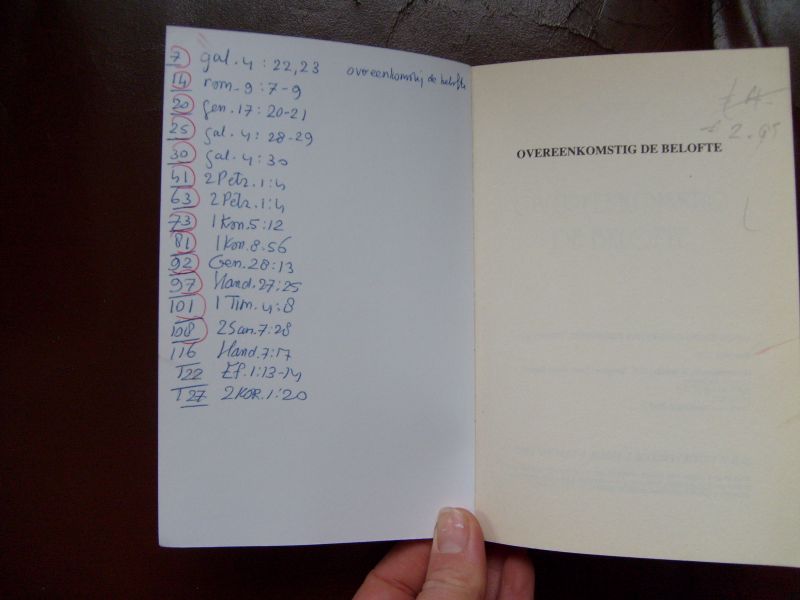 7 gal. 4 : 22,23 overeenkomstig de belofte
14 rom. 9 : 7-9
20 Gen. 17 : 20-21
25 gal. 4 : 28-29
30 gal. 4 : 30
41 2 Petr. 1:4
63 2 Petr. 1:4
73 1 Kon. 5:12
81 1 Kon. 8.56
92 Gen. 28:13
97 Hand. 27:25
101 1 Tim. 4:8
108 2 Sam. 7:28
116 Hand. 7:17
122 Ef. 1:13-14
127 2 KOR. 1:20
OVEREENKOMSTIG DE BELOFTE
2.95